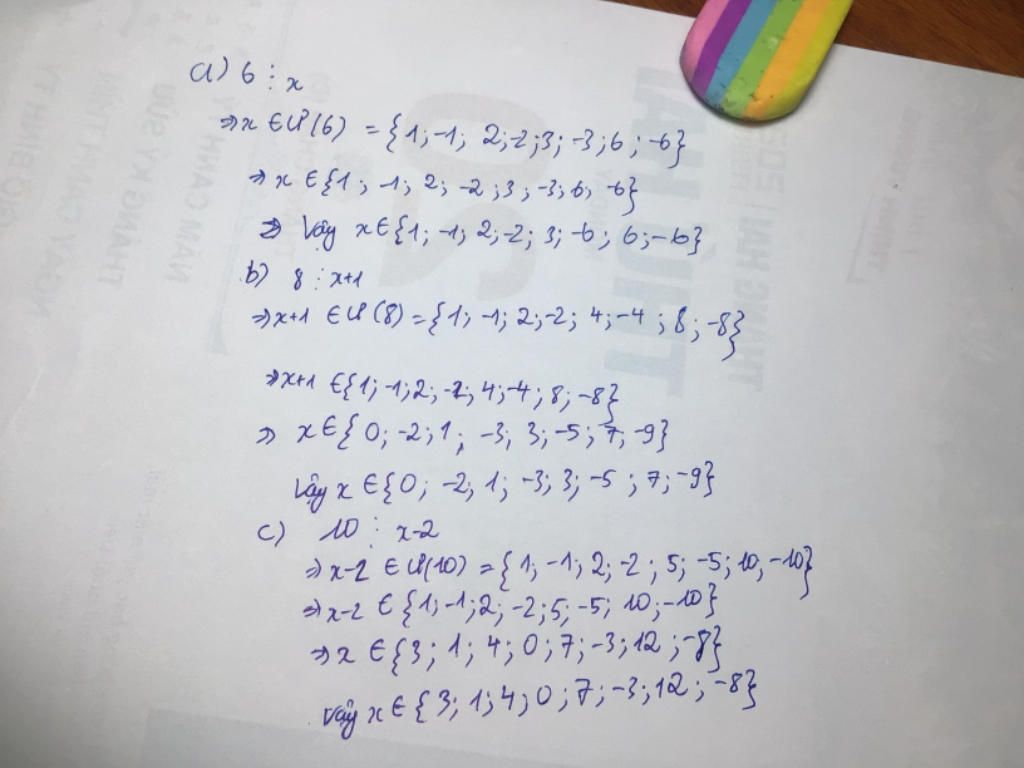 a) 6 ⋮ x
⇒ x ∈ Ư(6) = {1; -1; 2; -2; 3; -3; 6; -6}
⇒ x ∈ {1; -1; 2; -2; 3; -3; 6; -6}
⇒ Vậy x ∈ {1; -1; 2; -2; 3; -6; 6; -6}
b) 8 ⋮ x+1
⇒ x+1 ∈ Ư(8) = {1; -1; 2; -2; 4; -4; 8; -8}
⇒ x+1 ∈ {1; -1; 2; -2; 4; -4; 8; -8}
⇒ x ∈ {0; -2; 1; -3; 3; -5; 7; -9}
Vậy x ∈ {0; -2; 1; -3; 3; -5; 7; -9}
c) 10 ⋮ x-2
⇒ x-2 ∈ Ư(10) = {1; -1; 2; -2; 5; -5; 10; -10}
⇒ x-2 ∈ {1; -1; 2; -2; 5; -5; 10; -10}
⇒ x ∈ {3; 1; 4; 0; 7; -3; 12; -8}
Vậy x ∈ {3; 1; 4; 0; 7; -3; 12; -8}